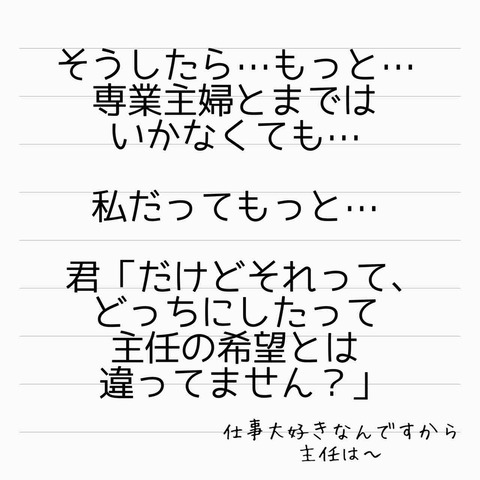 そうしたら…もっと…
専業主婦とまでは
いかなくても…
私だってもっと…
君「だけどそれって、
どっちにしたって
主任の希望とは
違ってません？」
仕事大好きなんですから
主任は〜